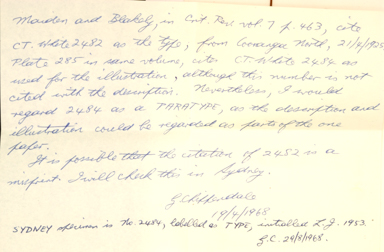 Maiden and Blakely, in Crit. Rev. vol 7 p. 463, cite
CT. White 2482 as the type, from North, 21/4/1925
Plate 285 in same volume, cites CT. White 2484 as
used for the illustration, although this number is not
cited with the description. Nevertheless, I would
regard 2484 as a PARATYPE, as the description and
illustration could be regarded as parts of the one
paper.
It is possible that the citation of 2482 is a
misprint. I will check this in Sydney.
G Chippendale
19/4/1968
SYDNEY specimen is No. 2484, labelled as TYPE, initialled L.J. 1953.
G.C. 29/8/1968.